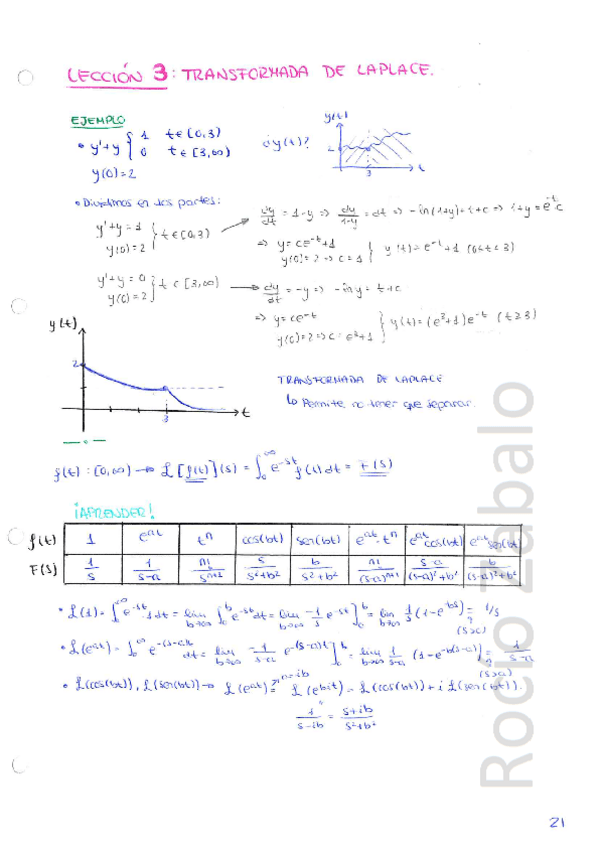 LECCIÓN 3: TRANSFORMADA DE LAPLACE.
EJEMPLO
• y'+y { 1 t∈[0,3)
0 t∈[3,∞)
¿y(t)?
y(0)=2
y(t)
2
3
t
• Dividimos en dos partes:
y'+y=1
y(0)=2 } t∈[0,3)
dy/dt = 1-y => dy/1-y = dt => -ln(1+y)=t+c => 1+y=e^-t·c
=> y=ce^-t+1
y(0)=2 => c=1 } y(t)=e^-t+1 (0≤t≤3)
y'+y=0
y(0)=2 } t∈[3,∞)
dy/dt = -y => -lny = t+c
=> y=ce^-t
y(0)=2 => c=e^3+1 } y(t)=(e^3+1)e^-t (t≥3)
y(t)
2
3
t
TRANSFORMADA DE LAPLACE
↳ Permite no tener que separar.
f(t):[0,∞) → L[f(t)](s) = ∫₀^∞ e^-st f(t)dt = F(s)
¡APRENDER!
f(t) 1 e^at t^n cos(bt) sen(bt) e^at·t^n e^at cos(bt) e^at sen(bt)
F(s) 1/s 1/s-a n!/s^n+1 s/s²+b² b/s²+b² n!/(s-a)^n+1 s-a/(s-a)²+b² b/(s-a)²+b²
• L(1) = ∫₀^∞ e^-st·1dt = lim b→∞ ∫₀^b e^-st dt = lim b→∞ -1/s e^-st ]₀^b = lim b→∞ 1/s (1-e^-bs) = 1/s
(s>0)
• L(e^at) = ∫₀^∞ e^-(s-a)t dt = lim b→∞ -1/s-a e^-(s-a)t ]₀^b = lim b→∞ 1/s-a (1-e^-b(s-a)) = 1/s-a
(s>a)
• L(cos(bt)), L(sen(bt)) → L(e^at) = a=ib L(e^ibt) = L(cos(bt)) + i L(sen(bt)).
1/s-ib = s+ib/s²+b²
Rocio Zabalo
21